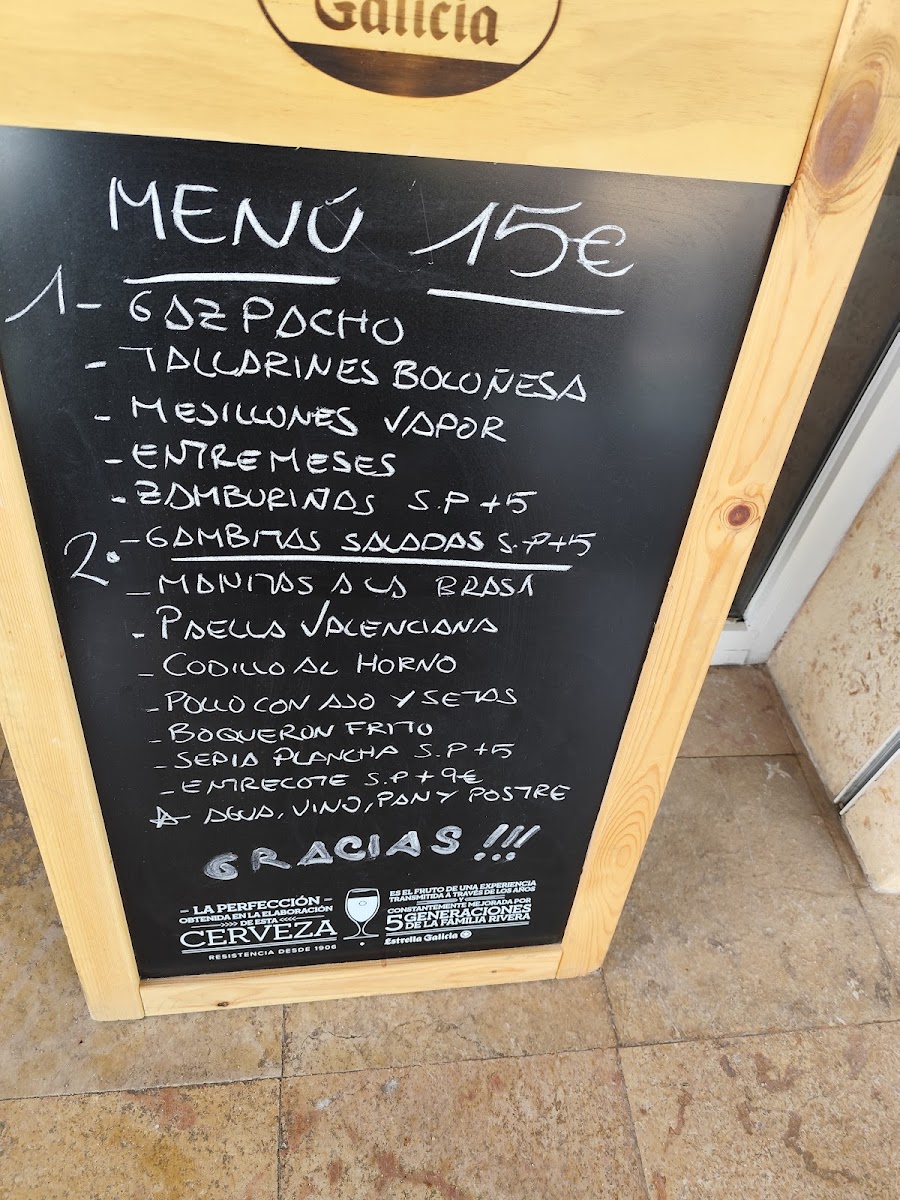 Galicia
MENÚ 15€
1- GAZPACHO
- TALLARINES BOLOÑESA
- MEJILLONES VAPOR
- ENTREMESES
- ZAMBURIÑAS S.P +5
2. - GAMBITAS SALADAS S.P+5
- MANITAS A LA BRASA
- PAELLA VALENCIANA
- CODILLO AL HORNO
- POLLO CON AJO Y SETAS
- BOQUERON FRITO
- SEPIA PLANCHA S.P +5
- ENTRECOTE S.P + 9€
AGUA, VINO, PAN Y POSTRE
GRACIAS !!!
- LA PERFECCIÓN -
OBTENIDA EN LA ELABORACIÓN
>>>> DE ESTA <<<<
CERVEZA
RESISTENCIA DESDE 1906
ES EL FRUTO DE UNA EXPERIENCIA
TRANSMITIDA A TRAVÉS DE LOS AÑOS
Y
CONSTANTEMENTE MEJORADA POR
5 GENERACIONES
DE LA FAMILIA RIVERA
Estrella Galicia